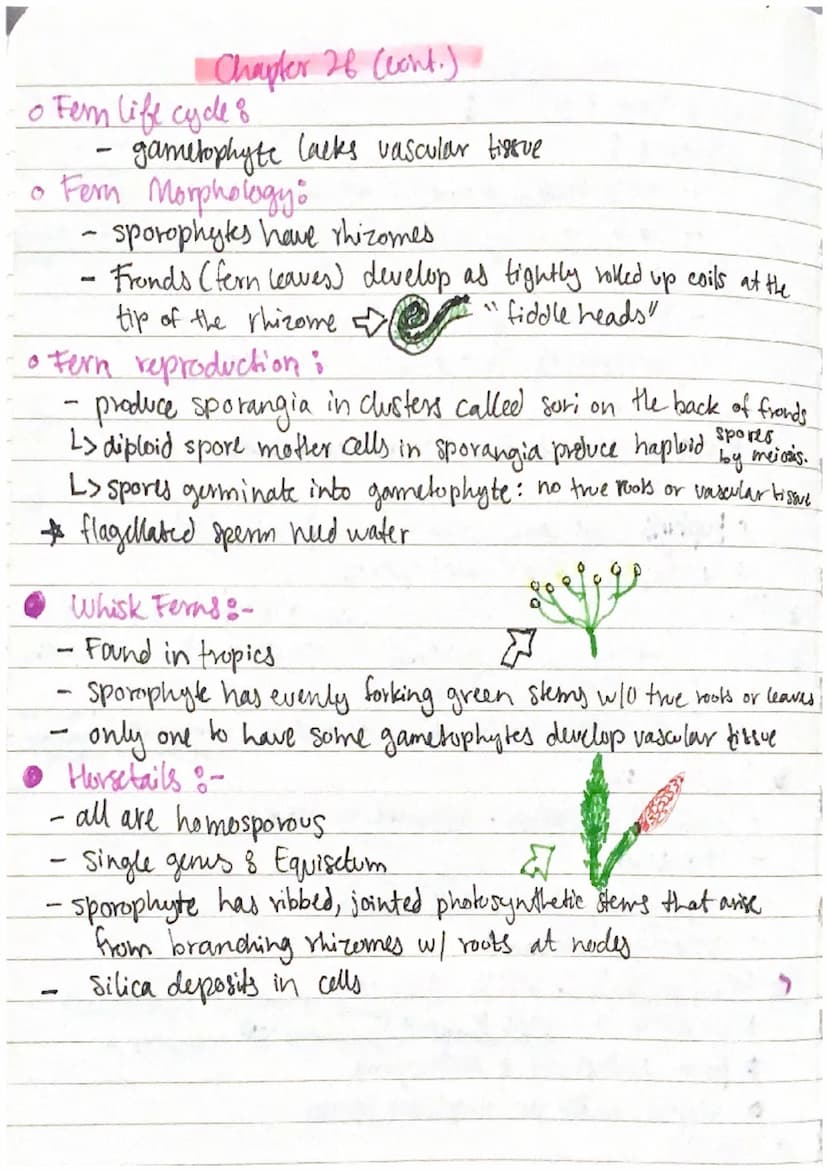 Chapter 26 (cont.)
○ Fern life cycle:
- gametophyte lacks vascular tissue
○ Fern Morphology:
- sporophytes have rhizomes
- Fronds (fern leaves) develop as tightly rolled up coils at the
tip of the rhizome ⇨ "fiddle heads"
○ Fern reproduction:
- produce sporangia in clusters called sori on the back of fronds
↳ diploid spore mother cells in sporangia produce haploid spores by meiosis.
↳ spores germinate into gametophyte: no true roots or vascular tissue
☆ flagellated sperm need water
● Whisk Ferns:-
- Found in tropics
- sporophyte has evenly forking green stems w/o true roots or leaves
- only one to have some gametophytes develop vascular tissue
● Horsetails:-
- all are homosporous
- single genus: Equisetum
- sporophyte has ribbed, jointed photosynthetic stems that arise
from branching rhizomes w/ roots at nodes
- Silica deposits in cells